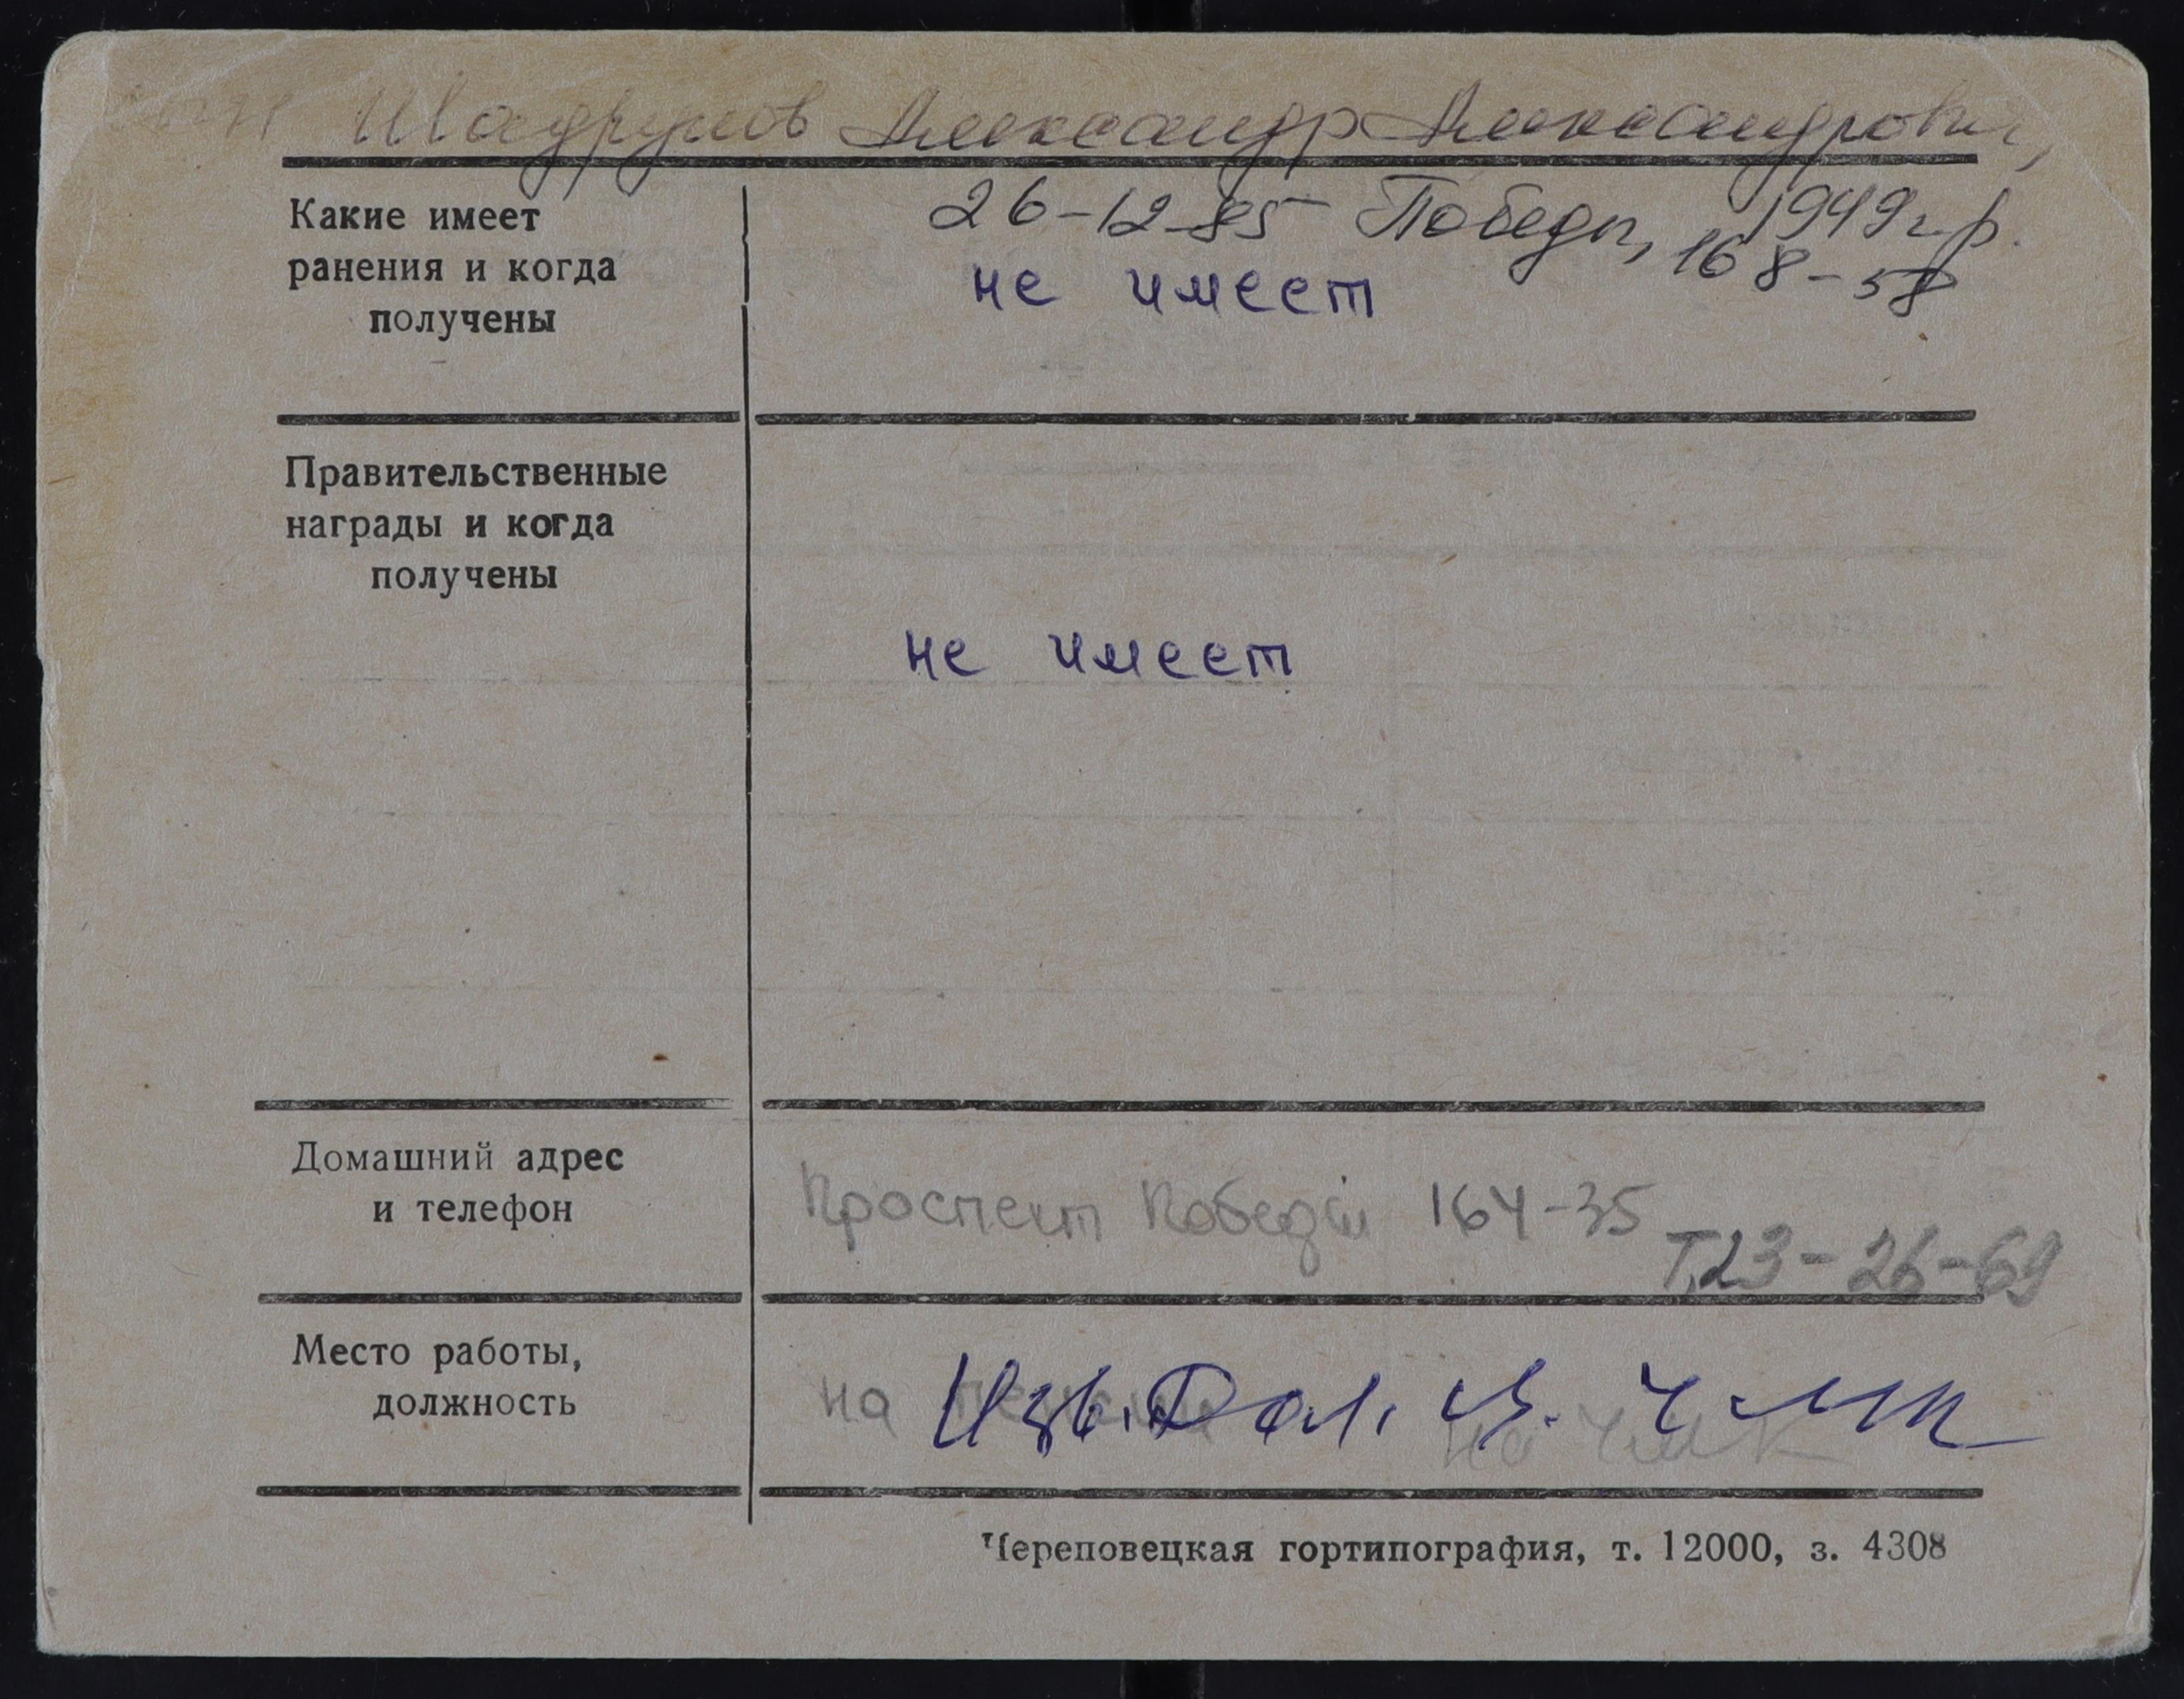 сын Шадрунов Александр Александрович,
1949 г.р.
26-12-85 Победы, 168-58
Какие имеет
ранения и когда
получены
не имеет
Правительственные
награды и когда
получены
не имеет
Домашний адрес
и телефон
Проспект Победы 164-35
Т.23-26-69
Место работы,
должность
на пенсии
на ЧМК
Череповецкая гортипография, т. 12000, з. 4308